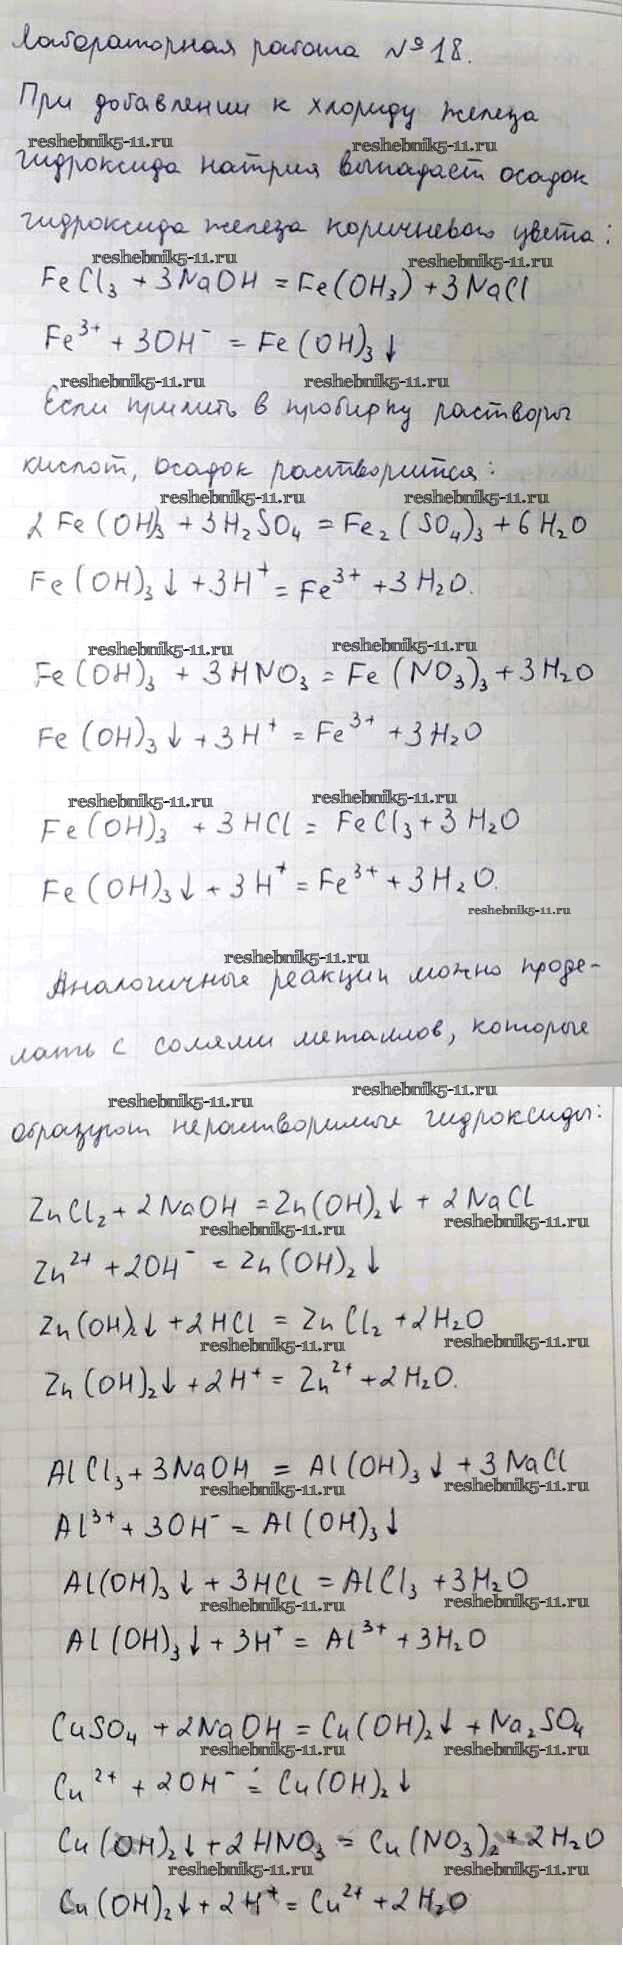 Лабораторная работа №18.
При добавлении к хлориду железа
reshebnik5-11.ru reshebnik5-11.ru
гидроксида натрия выпадает осадок
гидроксида железа коричневого цвета:
reshebnik5-11.ru reshebnik5-11.ru
FeCl₃ + 3NaOH = Fe(OH₃) + 3NaCl
Fe³⁺ + 3OH⁻ = Fe(OH)₃↓
reshebnik5-11.ru reshebnik5-11.ru
Если прилить в пробирку растворы
кислот, осадок растворится:
reshebnik5-11.ru reshebnik5-11.ru
2Fe(OH)₃ + 3H₂SO₄ = Fe₂(SO₄)₃ + 6H₂O
Fe(OH)₃↓ + 3H⁺ = Fe³⁺ + 3H₂O.
reshebnik5-11.ru reshebnik5-11.ru
Fe(OH)₃ + 3HNO₃ = Fe(NO₃)₃ + 3H₂O
Fe(OH)₃↓ + 3H⁺ = Fe³⁺ + 3H₂O
reshebnik5-11.ru reshebnik5-11.ru
Fe(OH)₃ + 3HCl = FeCl₃ + 3H₂O
Fe(OH)₃↓ + 3H⁺ = Fe³⁺ + 3H₂O.
reshebnik5-11.ru
reshebnik5-11.ru
Аналогичные реакции можно проде-
лать с солями металлов, которые
reshebnik5-11.ru reshebnik5-11.ru
образуют нерастворимые гидроксиды:
ZnCl₂ + 2NaOH = Zn(OH)₂↓ + 2NaCl
reshebnik5-11.ru reshebnik5-11.ru
Zn²⁺ + 2OH⁻ = Zn(OH)₂↓
Zn(OH)₂↓ + 2HCl = ZnCl₂ + 2H₂O
reshebnik5-11.ru reshebnik5-11.ru
Zn(OH)₂↓ + 2H⁺ = Zn²⁺ + 2H₂O.
AlCl₃ + 3NaOH = Al(OH)₃↓ + 3NaCl
reshebnik5-11.ru reshebnik5-11.ru
Al³⁺ + 3OH⁻ = Al(OH)₃↓
Al(OH)₃↓ + 3HCl = AlCl₃ + 3H₂O
reshebnik5-11.ru reshebnik5-11.ru
Al(OH)₃↓ + 3H⁺ = Al³⁺ + 3H₂O
CuSO₄ + 2NaOH = Cu(OH)₂↓ + Na₂SO₄
reshebnik5-11.ru reshebnik5-11.ru
Cu²⁺ + 2OH⁻ = Cu(OH)₂↓
Cu(OH)₂↓ + 2HNO₃ = Cu(NO₃)₂ + 2H₂O
reshebnik5-11.ru reshebnik5-11.ru
Cu(OH)₂↓ + 2H⁺ = Cu²⁺ + 2H₂O